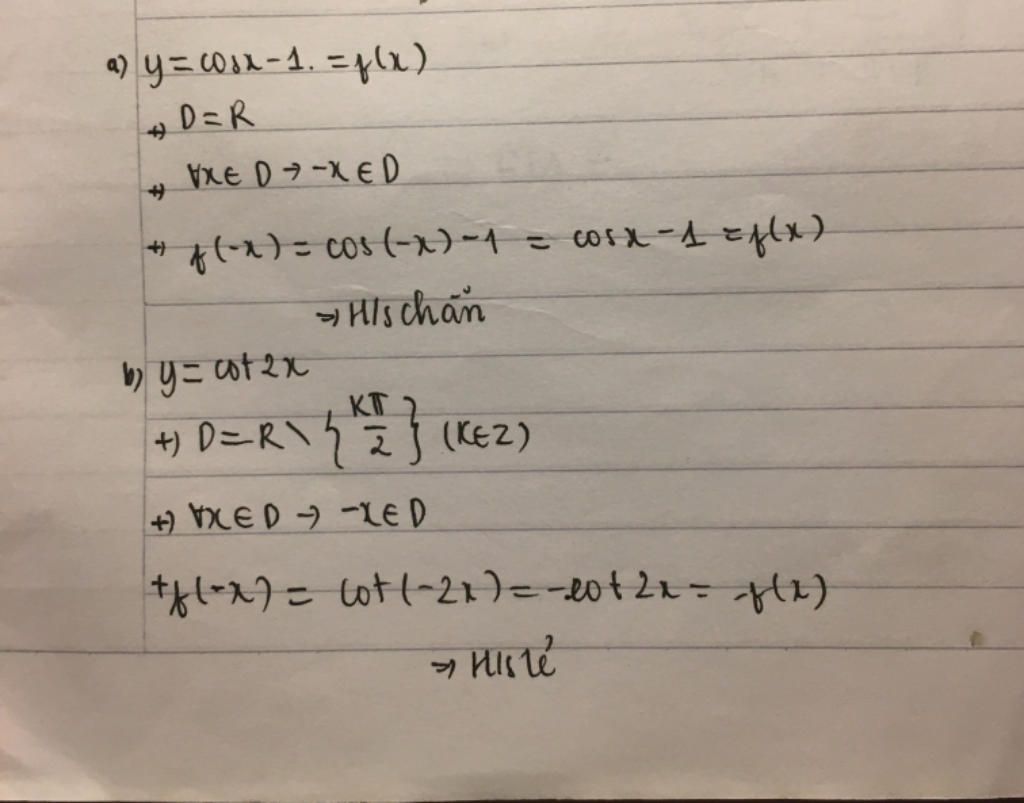 a) y = cosx - 1. = f(x)
+) D = R
+) ∀x ∈ D → -x ∈ D
+) f(-x) = cos(-x) - 1 = cosx - 1 = f(x)
⇒ H/s chẵn
b) y = cot 2x
+) D = R \ { Kπ/2 } (K ∈ Z)
+) ∀x ∈ D → -x ∈ D
+ f(-x) = cot(-2x) = -cot 2x = -f(x)
⇒ H/s lẻ